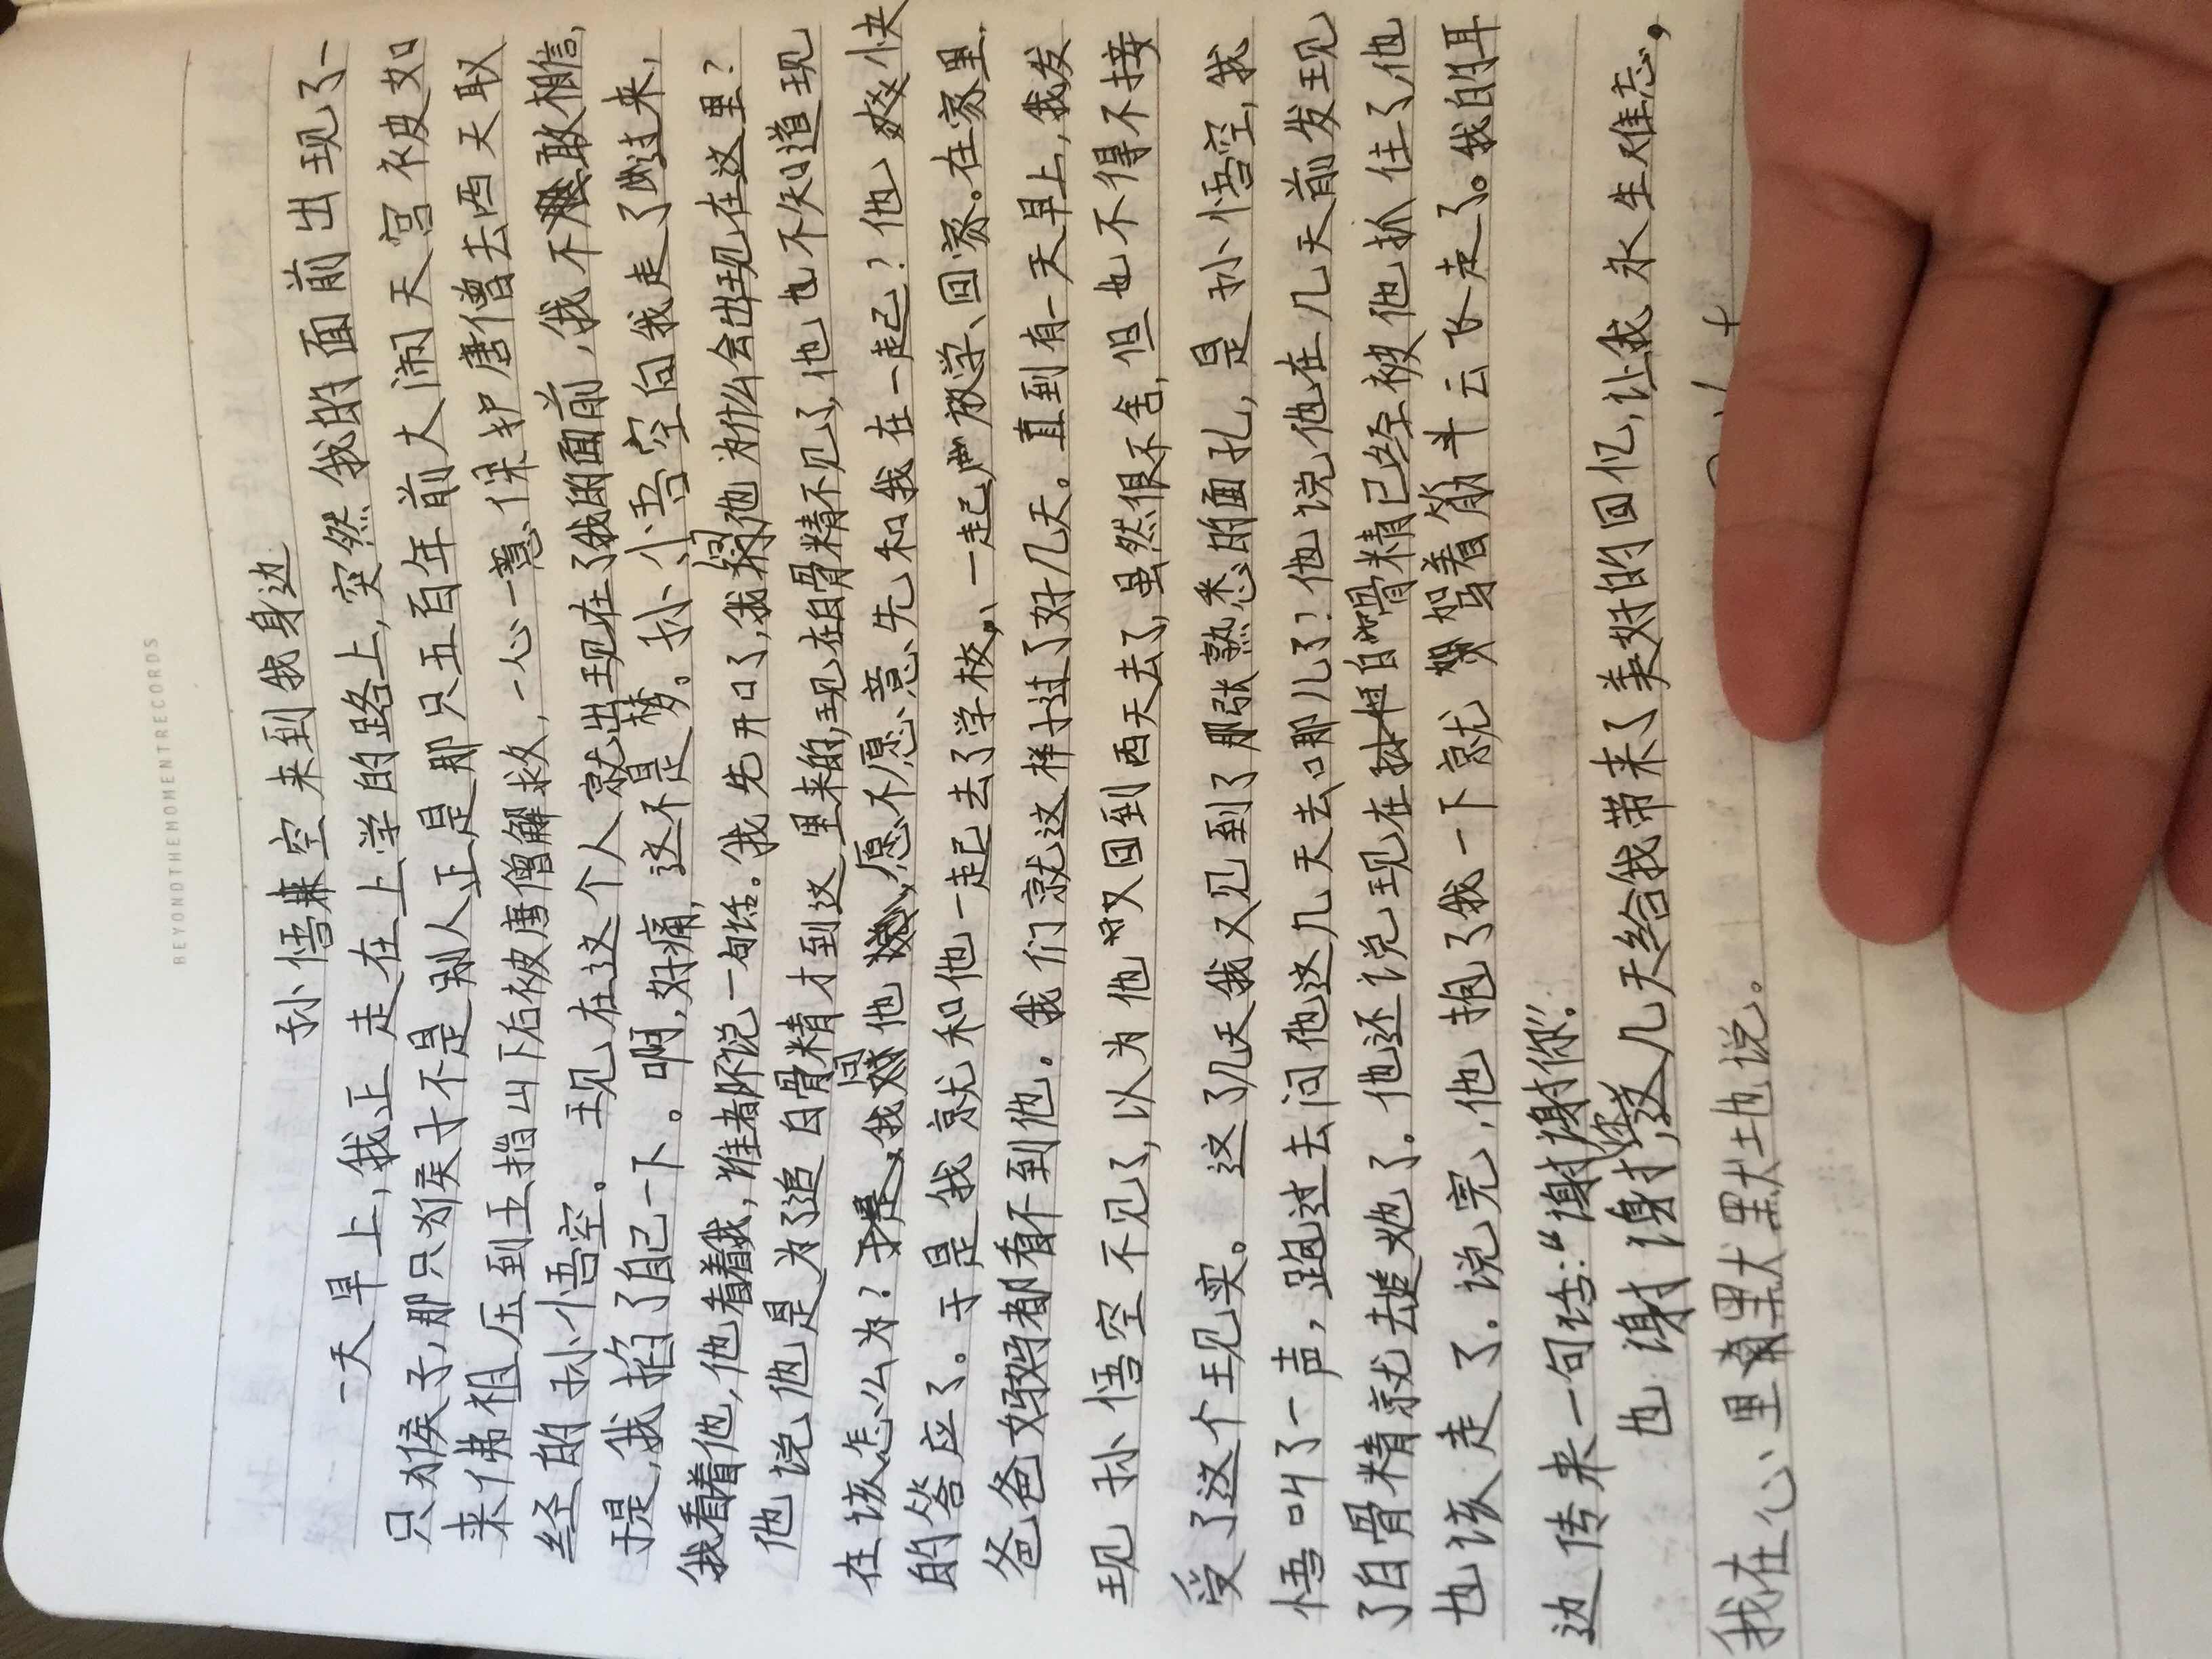 BEYONDTHEMOMENTRECORDS
孙悟空来到我身边
一天早上,我正走在上学的路上,突然我的面前出现了一
只猴子,那只猴子不是别人正是那只五百年前大闹天宫被如
来佛祖压到五指山下后被唐僧解救,一心一意保护唐僧去西天取
经的孙悟空。现在这个人就出现在了我的面前,我不敢相信,
于是,我掐了自己一下。啊,好痛,这不是梦。孙悟空向我走了过来,
我看着他,他看着我,谁都不说一句话。我先开口了,我问他为什么会出现在这里?
他说他是为了追白骨精才到这里来的,现在白骨精不见了,他也不知道现
在该怎么办?我问他愿不愿意先和我在一起?他爽快
的答应了。于是我就和他一起去了学校,一起放学、回家。在家里,
爸爸妈妈都看不到他。我们就这样过了好几天。直到有一天早上,我发
现孙悟空不见了,以为他又回到西天去了,虽然很不舍,但也不得不接
受了这个现实。这了几天我又见到了那张熟悉的面孔,是孙悟空,我
悟叫了一声,跑过去问他这几天去哪儿了?他说他在几天前发现
了白骨精就去追她了。他还说现在白骨精已经被他抓住了,他
也该走了。说完,他抱了我一下就驾着筋斗云飞走了。我的耳
边传来一句话:“谢谢你!”
也谢谢你,这几天给我带来了美好的回忆,让我永生难忘,
我在心里默默地说。